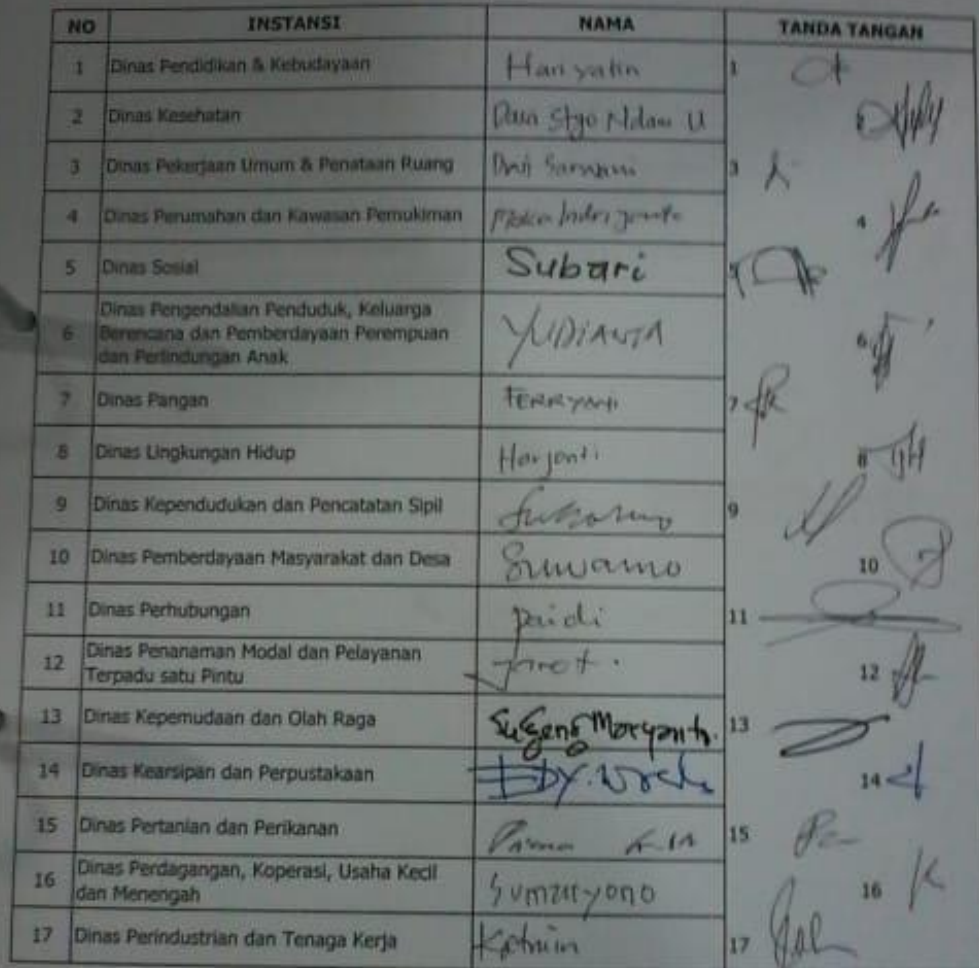 NO INSTANSI NAMA TANDA TANGAN
1 Dinas Pendidikan & Kebudayaan 1
2 Dinas Kesehatan
3 Dinas Pekerjaan Umum & Penataan Ruang 3
4 Dinas Perumahan dan Kawasan Pemukiman 4
5 Dinas Sosial Subari
6 Dinas Pengendalian Penduduk, Keluarga
Berencana dan Pemberdayaan Perempuan
dan Perlindungan Anak
YUDIANTA 6
7 Dinas Pangan 7
8 Dinas Lingkungan Hidup Harjonti 8
9 Dinas Kependudukan dan Pencatatan Sipil 9
10 Dinas Pemberdayaan Masyarakat dan Desa Suwarno 10
11 Dinas Perhubungan Paidi 11
12 Dinas Penanaman Modal dan Pelayanan
Terpadu satu Pintu
12
13 Dinas Kepemudaan dan Olah Raga Sugeng 13
14 Dinas Kearsipan dan Perpustakaan 14
15 Dinas Pertanian dan Perikanan 15
16 Dinas Perdagangan, Koperasi, Usaha Kecil
dan Menengah
Sumaryono 16
17 Dinas Perindustrian dan Tenaga Kerja 17